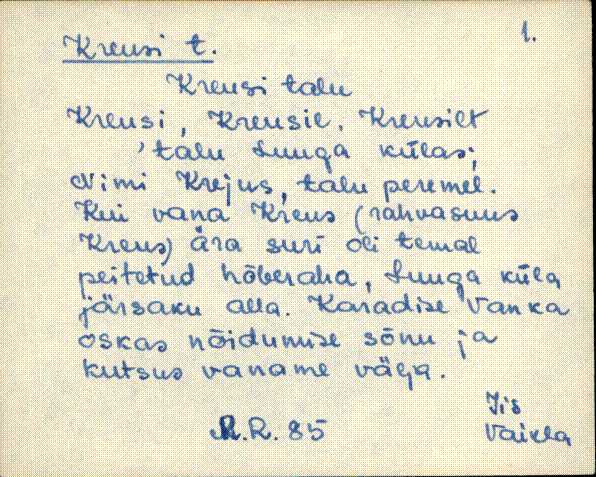 1.
Kreusi t.
Kreusi talu
Kreusi, Kreusil, Kreusilt
'talu Luuga külas;
Nimi Krejus, talu peremel.
Kui vana Kreus (rahvasuus
Kreus) ära suri oli temal
peitetud hõberaha, Luuga küla
järsaku alla. Karadise Vanka
oskas nõidumise sõnu ja
kutsus vaname välja.
Iis
R.R. 85 Vaikla